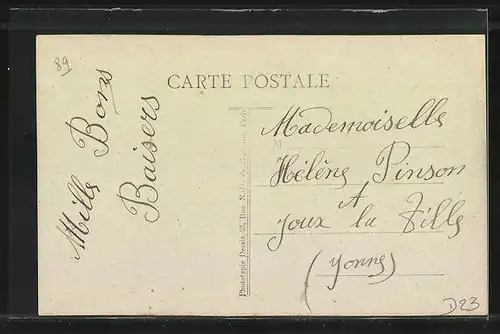 89
CARTE POSTALE
Mille Bons
Baisers
Phototypie Desaix 33, Rue N.D.
Mademoiselle
M
Hélène Pinson
A
Joux la Ville
(Yonne)
D23